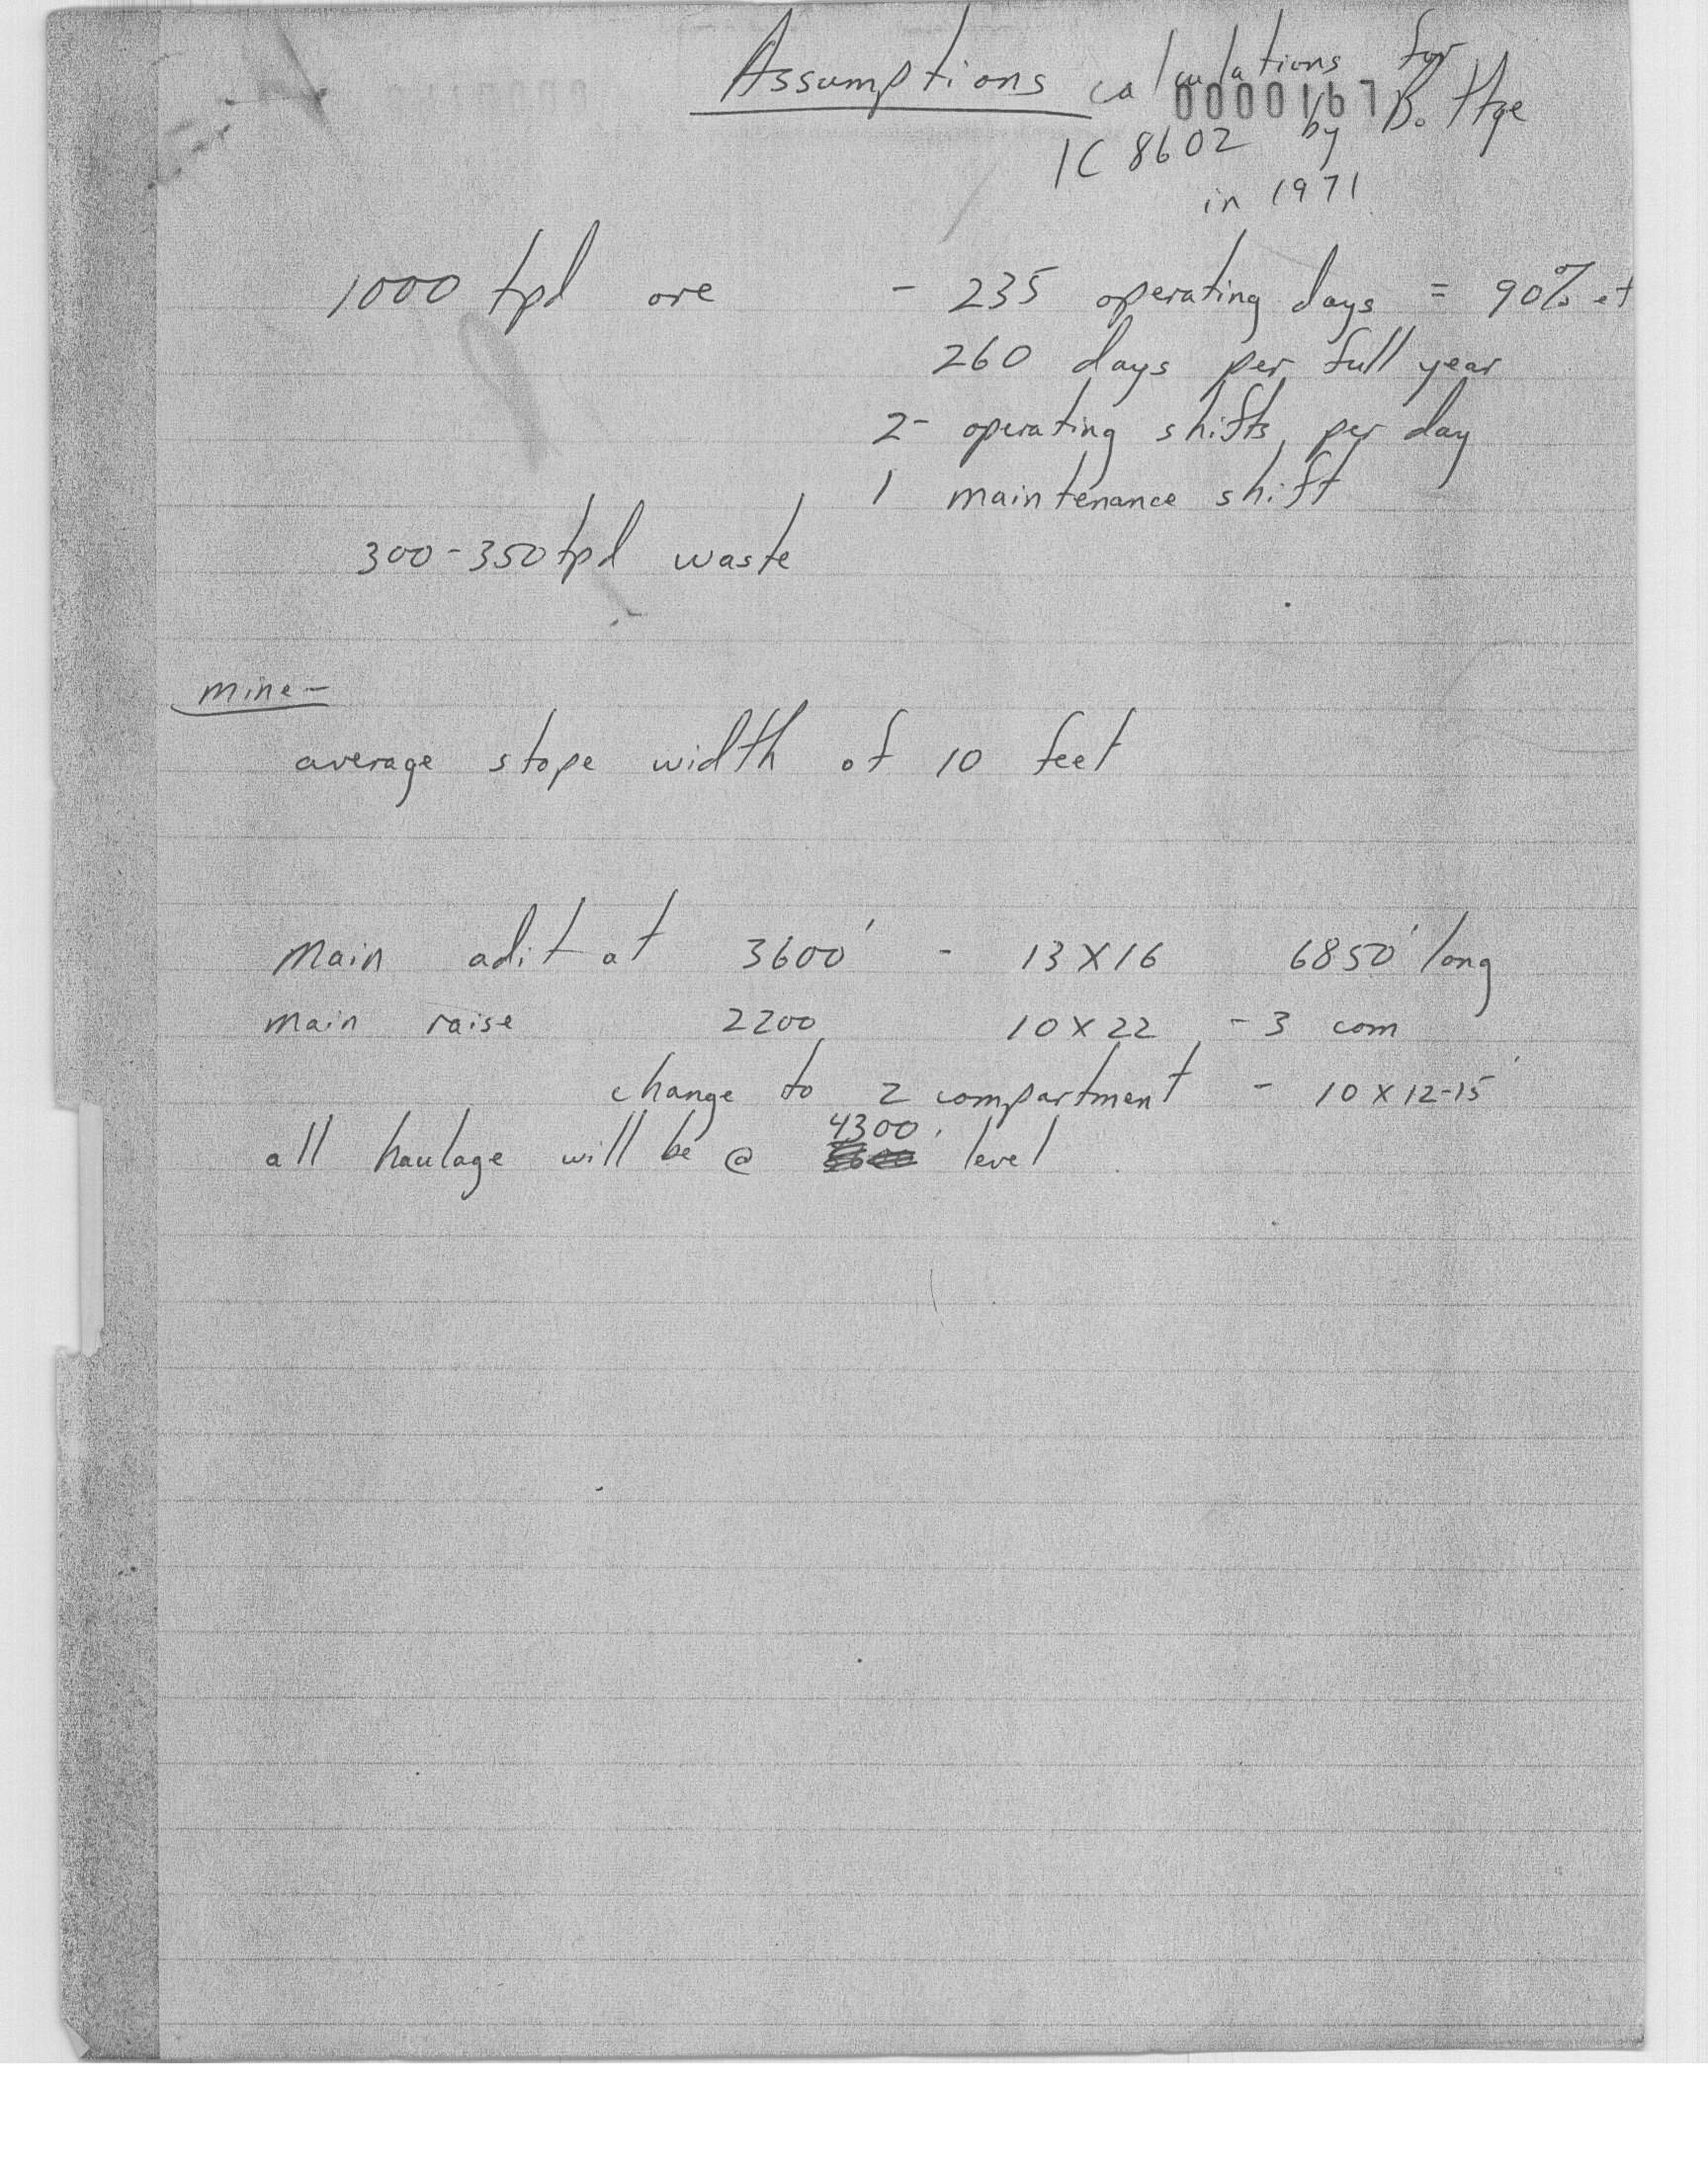 Assumptions calculations for
0000167
IC 8602 by Bottge
in 1971
1000 tpd ore - 235 operating days = 90% of
260 days per full year
2- operating shifts per day
1 maintenance shift
300-350 tpd waste
mine-
average stope width of 10 feet
Main adit at 3600' - 13 X 16 6850' long
main raise 2200 10 X 22 - 3 com
change to 2 compartment - 10 X 12-15'
4300'
all haulage will be @ level